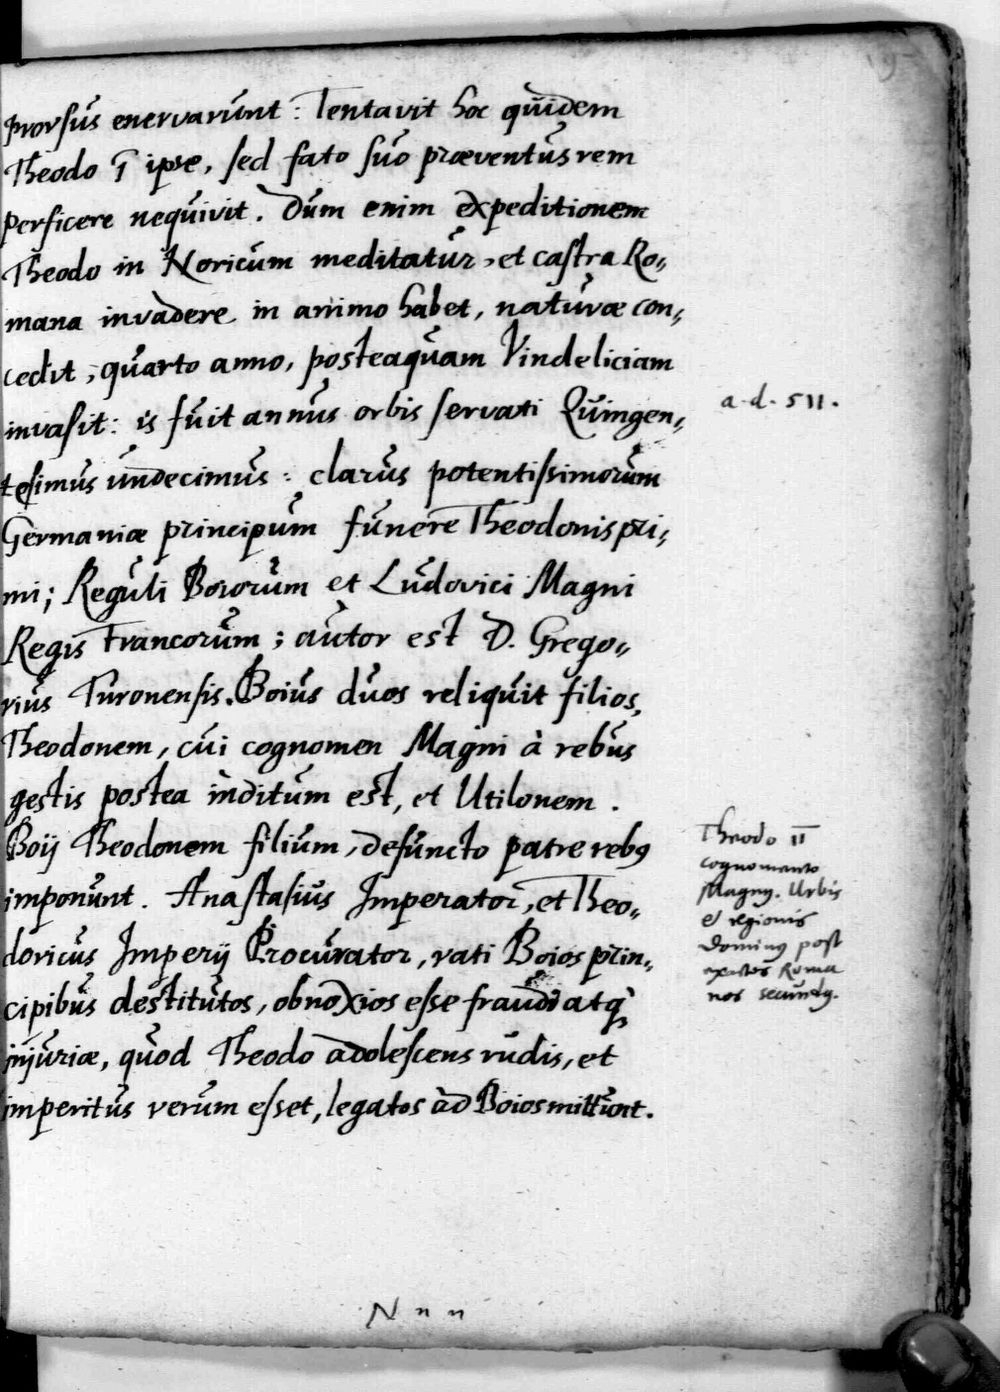 prorsus enervarunt: Tentavit hoc quidem
Theodo I ipse, sed fato suo præventus rem
perficere nequivit. Dum enim expeditionem
Theodo in Noricum meditatur, et castra Ro„
mana invadere in animo habet, naturæ con„
cedit, quarto anno, posteaquam Vindeliciam
invasit: is fuit annus orbis servati Quingen„
tesimus undecimus: clarus potentissimorum
Germaniæ principum funere Theodonis pri„
mi; Reguli Boiorum et Ludovici Magni
Regis Francorum; autor est D. Grego„
rius Turonensis. Boius duos reliquit filios,
Theodonem, cui cognomen Magni à rebus
gestis postea inditum est, et Utilonem.
Boij Theodonem filium, defuncto patre rebus
imponunt. Anastasius Imperator, et Theo„
doricus Imperij Procurator, rati Boios prin„
cipibus destitutos, obnoxios esse fraudi atq̃
injuriæ, quod Theodo adolescens rudis, et
imperitus rerum esset, legatos ad Boios mittunt.
a. d. 511.
Theodo II
cognomento
Magnus. Urbis
et regionis
Dominus post
exactos Roma
nos secundus.
N n n